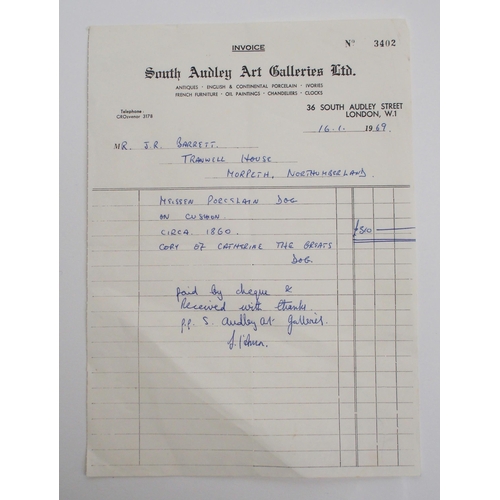 INVOICE
Nº 3402
South Audley Art Galleries Ltd.
ANTIQUES · ENGLISH & CONTINENTAL PORCELAIN · IVORIES
FRENCH FURNITURE · OIL PAINTINGS · CHANDELIERS · CLOCKS
Telephone:
GROsvenor 3178
36 SOUTH AUDLEY STREET
LONDON, W.1
16.1. 1969
MR. J.R. BARRETT.
TRANWELL HOUSE
MORPETH, NORTHUMBERLAND.
MEISSEN PORCELAIN DOG
ON CUSHION.
CIRCA. 1860.
COPY OF CATHERINE THE GREATS
DOG.
paid by cheque &
Received with thanks.
p.p. S. Audley Art Galleries.